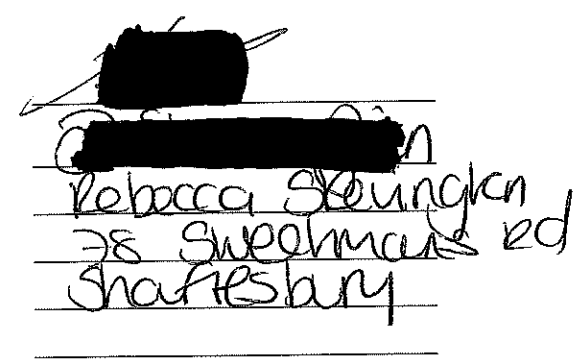 Rebecca Skevington
38 Sweetmans Rd
Shaftesbury